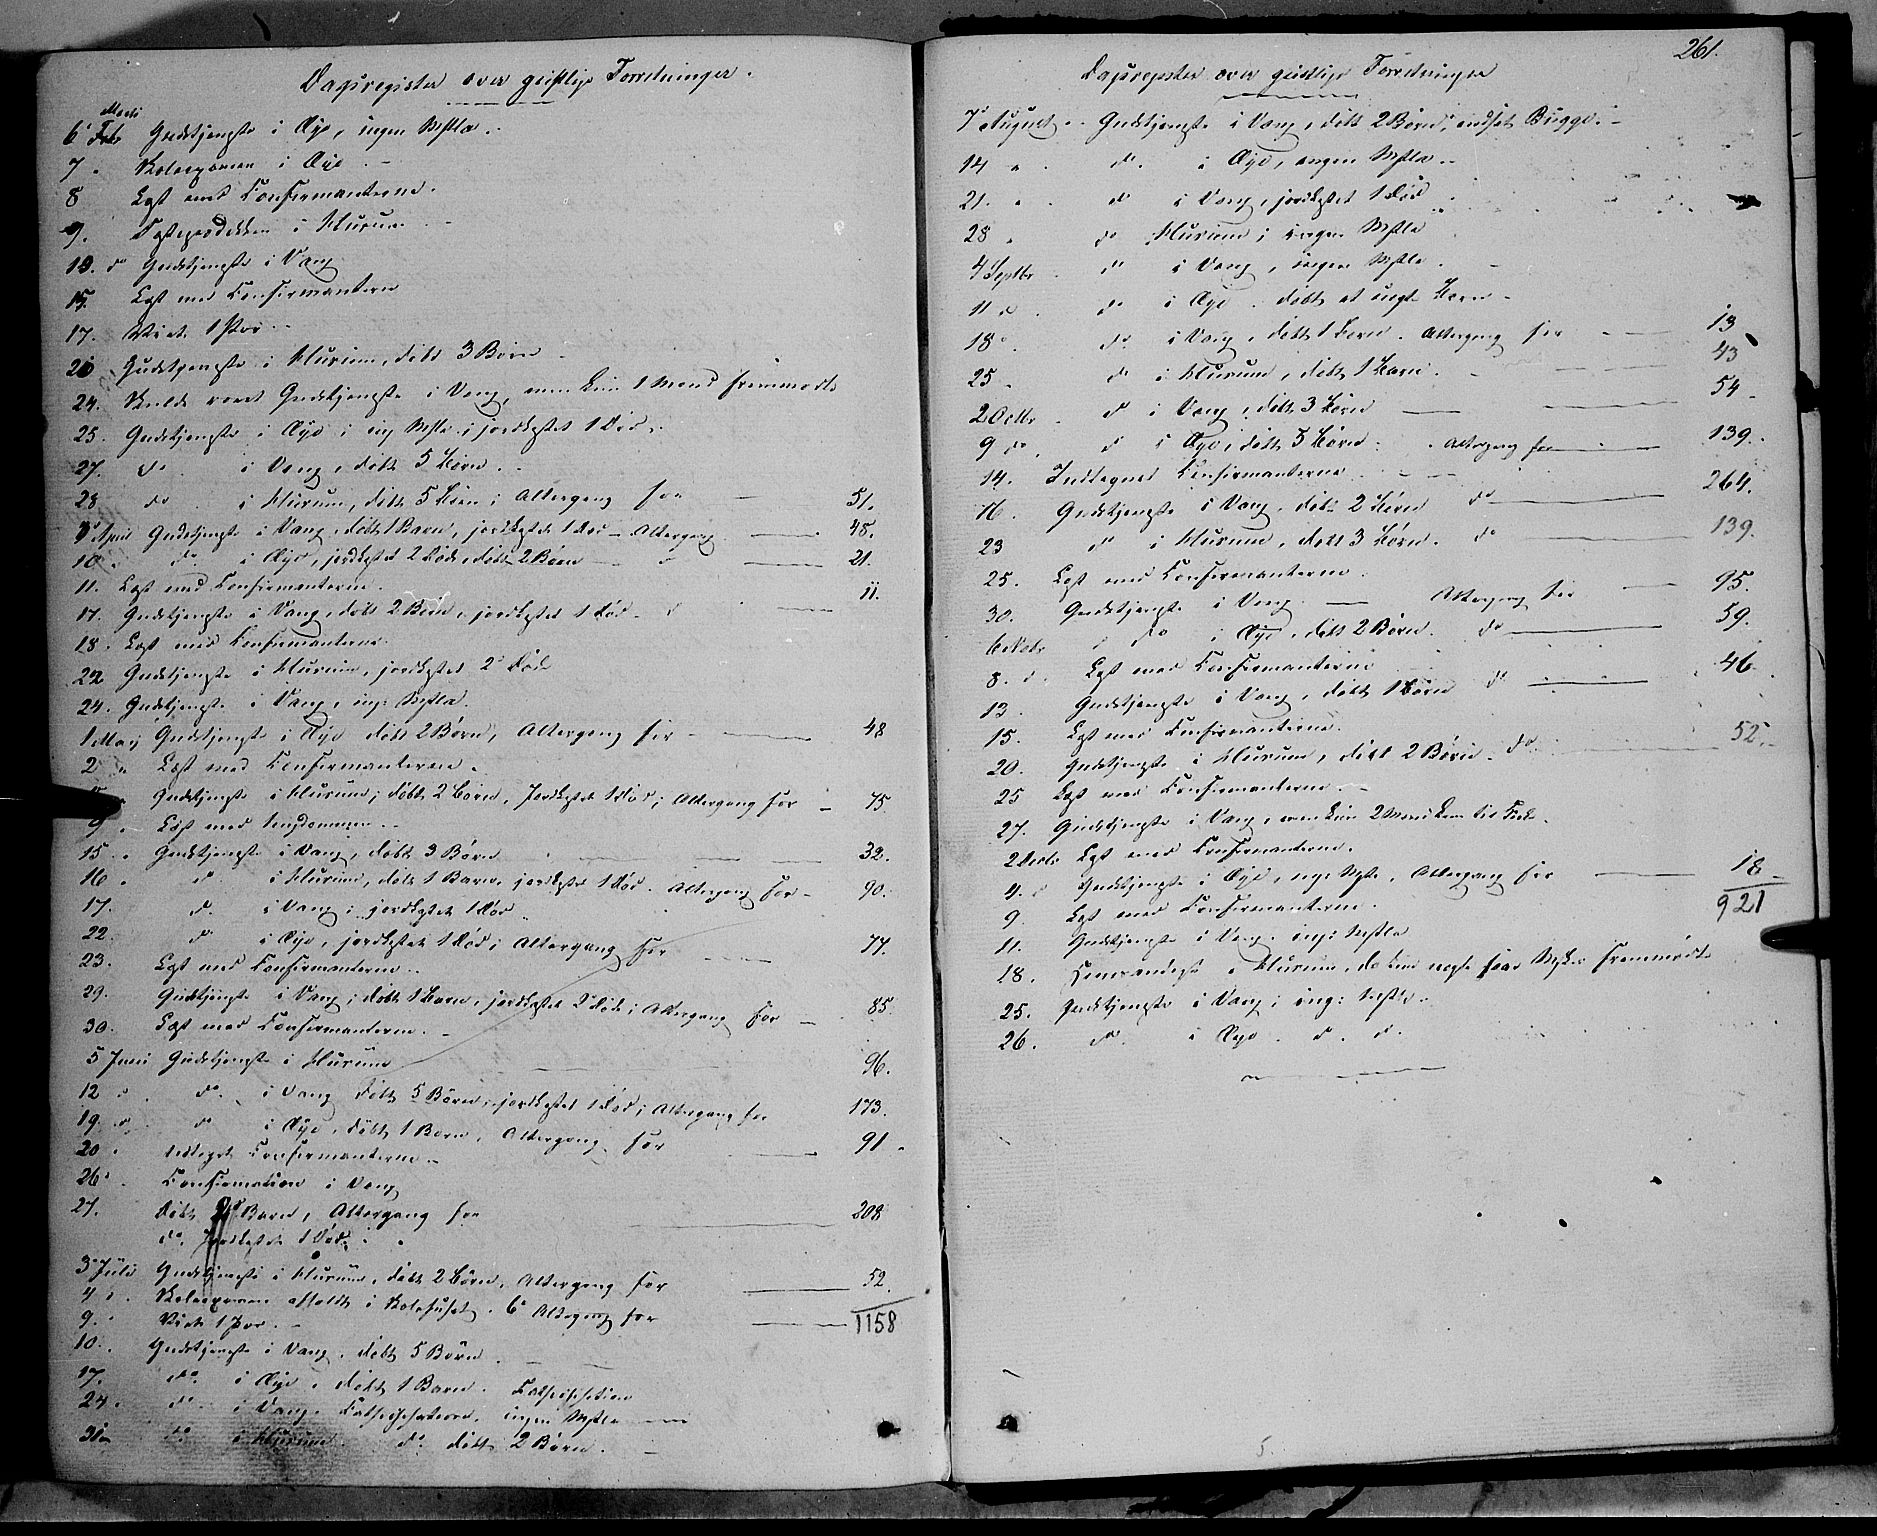 Dagsregister over geistlige Forretninger.
Marts
6 Feb Gudstjeneste i Øye, ingen
7 " Skolexamen i Øye
8 Læst med Confirmanterne.
9. i Hurum
13. do Gudstjeneste i Vang
15. Læst med Confirmanterne
17. Viet 1 Par
20 Gudstjeneste i Hurum, døbt 3 Børn
24. Skulde været Gudstjeneste i Vang, men kun 1 Mand fremmødte
25. Gudstjeneste i Øye; jordfæstet 1 Død.
27. do i Vang, døbt 5 Børn.
28 do i Hurum, døbt 5 Børn; Altergang for 51.
3 April Gudstjeneste i Vang, døbt 1 Barn, jordfæstet 1 Død - Altergang 48.
10 do i Øye, jordfæstet 2 Døde, døbt 2 Børn 21.
11. Læst med Confirmanterne.
17. Gudstjeneste i Vang, døbt 2 Børn, jordfæstet 1 Død. d 11.
18. Læst med Confirmanterne
22 Gudstjeneste i Hurum, jordfæstet 2 Død
24. Gudstjeneste i Vang, ing:
1 Maj Gudstjeneste i Øye døbt 2 Børn, Altergang for 48
2 " Læst med Confirmanterne.
Gudstjeneste i Hurum; døbt 2 Børn, Jordfæstet 1 Død; Altergang for 75
9 " Læst med Ungdommen
15 " Gudstjeneste i Vang, døbt 3 Børn 32.
16 " do i Hurum, døbt 1 Barn, jordfæstet 1 Død. Altergang for 90.
17. do i Vang; jordfæstet 1 Død
22. do i Øye, jordfæstet 1 Død; Altergang for 77.
23. Læst med Confirmanterne
29. Gudstjeneste i Vang; døbt 1 Barn, jordfæstet 2 Døde; Altergang for 85.
30. Læst med Confirmanterne.
5 Juni Gudstjeneste i Hurum 96.
12 " do. i Vang døbt 5 Børn, jordfæstet 1 Død; Altergang for 173.
19. " do i Øye, døbt 1 Barn, Altergang for 91.
20 " Confirmanterne
26 " Confirmation i Vang
27. Døbt Barn, Altergang for 208
do. Jordfæstet 1 Død.
3 Juli Gudstjeneste i Hurum, døbt 2 Børn, Altergang for 52.
4 " Skolexamen afholdt i Skolehuset. 6 Altergang for
9. " Viet 1 Par. 1158
10. Gudstjeneste i Vang, døbt 5 Børn
17. do. i Øye, døbt 1 Barn.
24. do i Vang. ingen
31 do. i Hurum. do. døbt 2 Børn.
261.
Dagsregister over geistlige Forretninger
7 August Gudstjeneste i Vang, døbt 2 Børn,
14 " do. i Øye, ingen
21. " do i Vang, jordfæstet 1 Død
28 " do Hurum; ingen
4 Septbr do i Vang, ingen
11 d do i Øye. døbt
18 do. i Vang, døbt 1 Barn. Altergang for 13
25 do i Hurum, døbt 1 Barn. 43
2 Octbr do i Vang, døbt 3 Børn 54
9 do. do i Øye, døbt 3 Børn. Altergang for 139.
14. Confirmanterne
16. Gudstjeneste i Vang, døbt 2 Børn do 264.
23 do i Hurum, døbt 3 Børn. do 139.
25. Læst med Confirmanterne.
30. Gudstjeneste i Vang Altergang for 95.
6 Novbr do i Øye, døbt 2 Børn. do 59.
8. d. Læst med Confirmanterne
13 Gudstjeneste i Vang, døbt 1 Barn do 46
15. Læst med Confirmanterne.
20. Gudstjeneste i Hurum, døbt 2 Børn. do. 52.
25 Læst med Confirmanterne.
27. Gudstjeneste i Vang, men kun 2 Mennesker til Kirke.
2 Decbr Læst med Confirmanterne.
4. d Gudstjeneste i Øye, Altergang for 18
9. Læst med Confirmanterne. 921
11. Gudstjeneste i Vang. ing:
18. i Hurum, da kun nogle faae fremmødte
25. Gudstjeneste i Vang; ing:
26. do. i Øye. d. d.